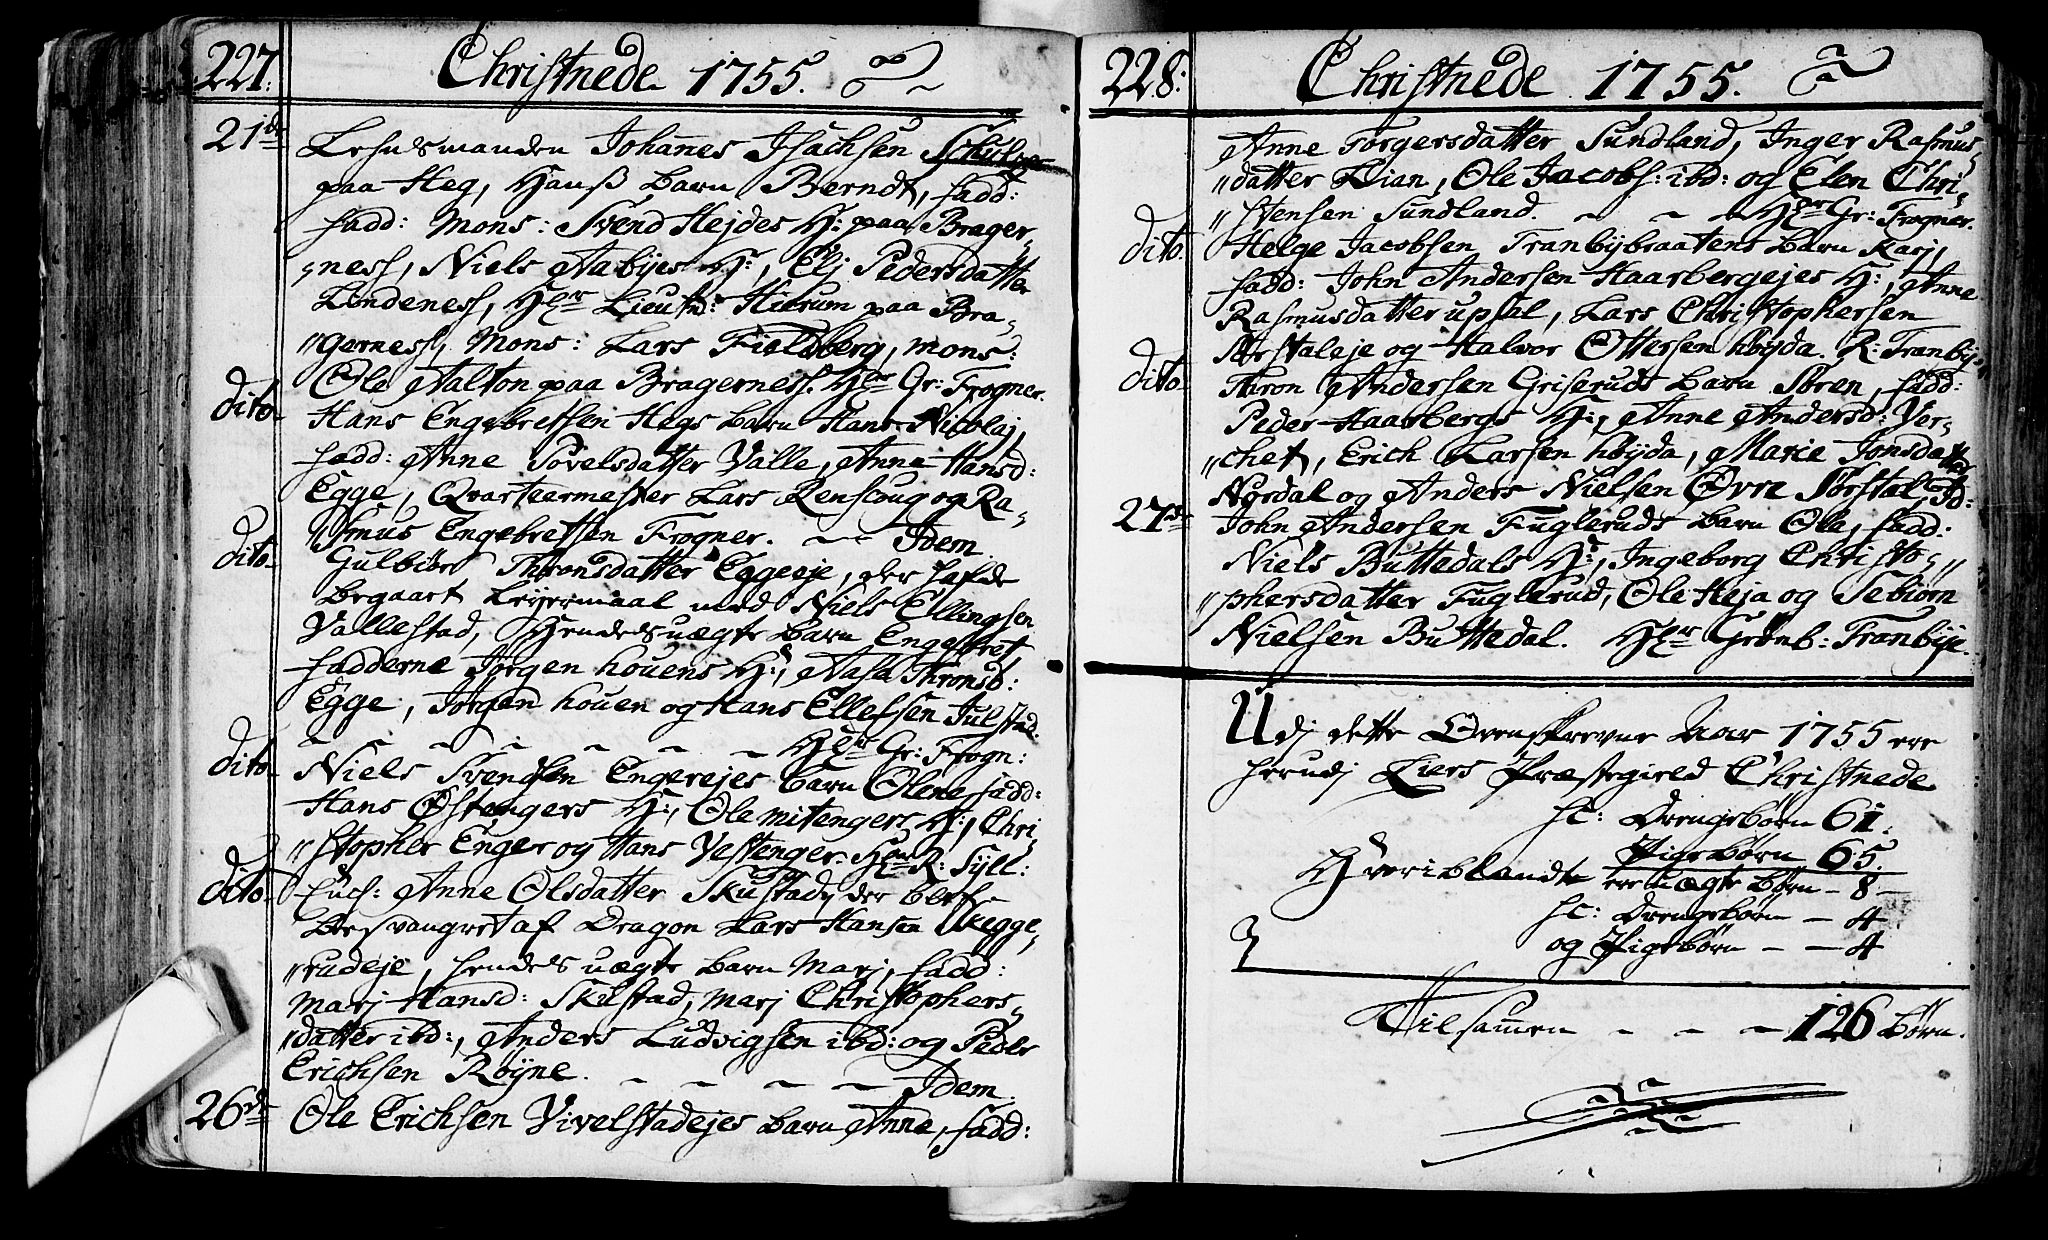 227.
Christnede 1755.
21de
Lehnsmanden Johannes Isachsen Schulze
paa Heg, Hanß barn Berndt, fadd:
fadd: Mons: Svend Hejdes H: paa Brager-
"ness, Niels Aabyes H:, Elj Pedersdatter
Lindeness, Hr Lieutn: Hierum paa Bra-
"gerness, Mons: Lars Fieldberg, Mons:
Ole Aalton paa Bragerness. Hr Gr: Frogner.
dito.
Hans Engebretsen Hegs barn Hans Nicolaj,
fadd: Anne Povelsdatter Valle, Anne Hansd:
Egge, Qvarteermester Lars Renscoug og Ra-
"smus Engebretsen Frogner. Idem.
dito.
Gulbiör Thronsdatter Eggeeje, der hafde
begaaet Leyermaal med Niels Ellingsen
Vallestad, Hendes uægte barn Engebret,
fadderne Jörgen houens H:, Aase Thronsd:
Egge, Jörgen houen og Hans Ellefsen Julstad.
Hr Gr: Frogn:
dito.
Niels Svendsen Engerejes barn Olene, fadd:
Hans Östengers H:, Ole mitengers H:, Chri-
"stopher Enger og Hans Vestenger. Hr R: Syll:
dito.
Anne Olsdatter Skustad, der blef
besvangret af Dragon Lars Hansen Skegge-
"rudeje, hendes uægte barn Marj, fadd:
Marj Hansd: Skustad, Marj Christophers-
"datter ibd:, Anders Ludvigsen ibd: og Peder
Erichsen Röyne. Idem.
26de
Ole Erichsen Vivelstadejes barn Anne, fadd:
228.
Christnede 1755.
Anne Torgersdatter Sundland, Inger Rasmus-
"datter Lian, Ole Jacobs: ibd: og Elen Chri-
"stensen Sundland. Hr Gr: Frogner.
dito.
Helge Jacobsen Tranbybraatens barn Karj,
fadd: John Andersen Haarbergejes H:, Anne
Rasmusdatter upsal, Lars Christophersen
Narstaleje og Halvor Ottersen höyda. R: Tranby.
dito.
Thron Andersen Griseruds barn Sören, fadd:
Peder Haarbergs H:, Anne Andersd: Ver-
"chet, Erich Larsen höyda, Marie Jonsdatter
Nordal og Anders Nielsen Övre Sörstal, Id:
27de
John Andersen Fugleruds barn Ole, fadd:
Niels Buttedals H:, Ingeborg Christo-
"phersdatter Fuglerud, Ole Heja og Tebiörn
Nielsen Buttedal. Hr Grönb: Tranbye.
Udj dette Ovenskrevne Aar 1755 ere
herudj Liers Præstegield Christnede
sc: Drengebörn 61.
Pigebörn 65.
Hvoriblandt ere uægte börn - 8
sc: Drengebörn - 4
og Pigebörn - - 4
Tilsammen - - - 126 börn.